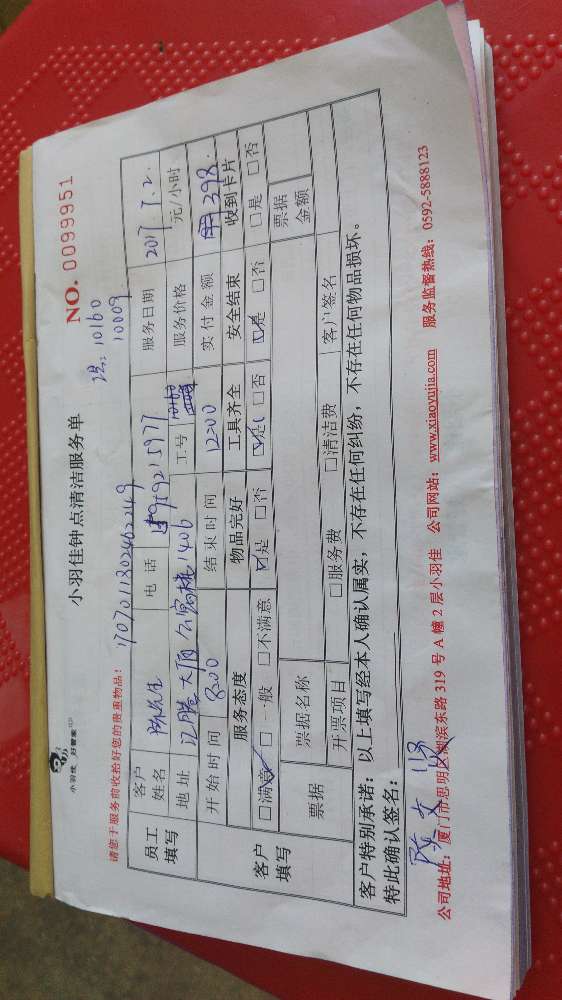 小羽佳 好管家
小羽佳钟点清洁服务单
NO. 0099951
10160
10009
请您于服务前收拾好您的贵重物品!
员工填写
客户姓名 陈先生 电话 服务日期 2017.7.2.
地址 大厦 1406 工号 服务价格 元/小时
开始时间 8:00 结束时间 12:00 实付金额 398.
客户填写
服务态度 物品完好 工具齐全 安全结束 收到卡片
☑满意 □一般 □不满意 ☑是 □否 ☑是 □否 ☑是 □否 □是 □否
票据 票据名称 票据金额
开票项目 □服务费 □清洁费 客户签名
客户特别承诺:以上填写经本人确认属实,不存在任何纠纷,不存在任何物品损坏。
特此确认签名:
公司地址:厦门市思明区湖滨东路 319 号 A 幢 2 层小羽佳 公司网站:www.xiaoyujia.com 服务监督热线:0592-5888123